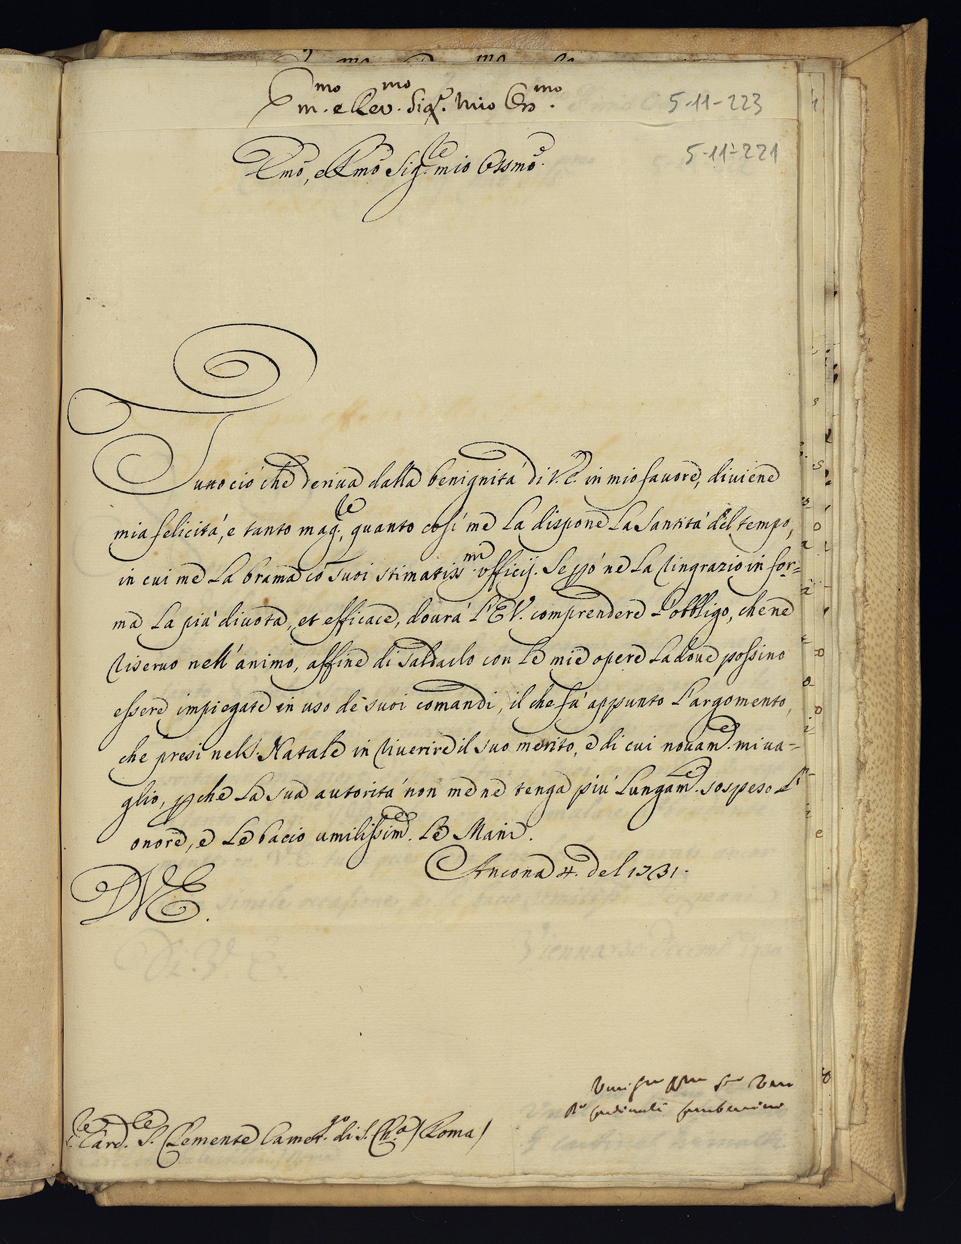 Em.mo e Rev.mo Sig.r mio Oss.mo
5-11-223
Emo, e Rmo Sig.re mio Ossmo
5-11-221
Tutto ciò che deriva dalla benignità di V. E. in mio favore, diviene
mia felicità, e tanto mag.re, quanto così me la dispone la Santità del tempo,
in cui me la brama có suoi stimatiss.mi ufficij. Se pò ne la ringrazio in for=
ma la più divota, et efficace, dovrà l'E V. comprendere l'obbligo, che ne
riservo nell' animo, affine di saldarlo con le mie opere ladove possino
essere impiegate in uso de suoi comandi, il che fà appunto l'argomento,
che presi nel S. Natale in riverire il suo merito, e di cui novam.e mi va=
glio, pche la sua autorità non me ne tenga più lungam.e sospeso l'
onore, e le bacio umilissim.e le Mani.
Ancona 4. del 1731.
D V E.
Sre Card.le S. Clemente Camer.go di S. Ch.a / Roma /